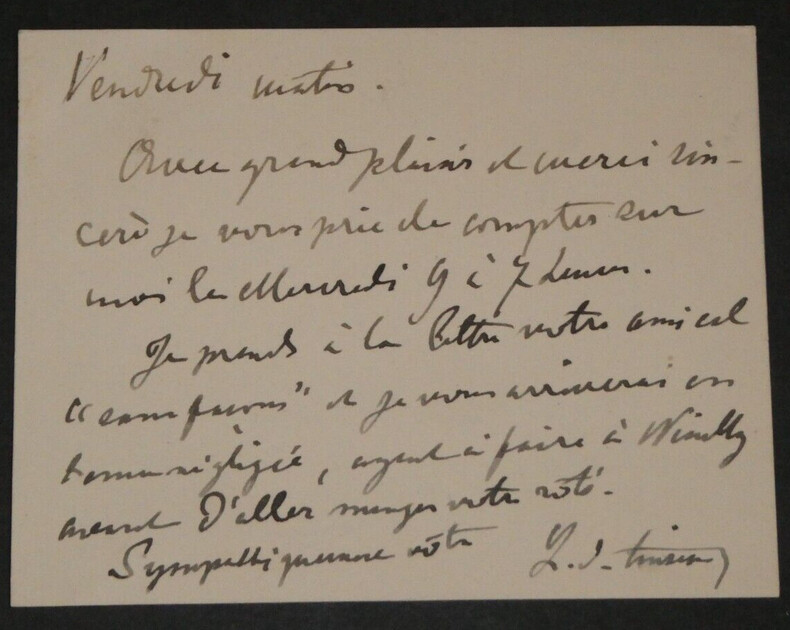 Vendredi matin.
Avec grand plaisir et merci sin-
cère je vous prie de compter sur
moi le Mercredi 9 à 7 heures.
Je prends à la lettre votre amical
"sans façons" et je vous arriverai en
tenue négligée, ayant à faire à
avant d'aller manger votre rôti.
Sympathiquement vôtre